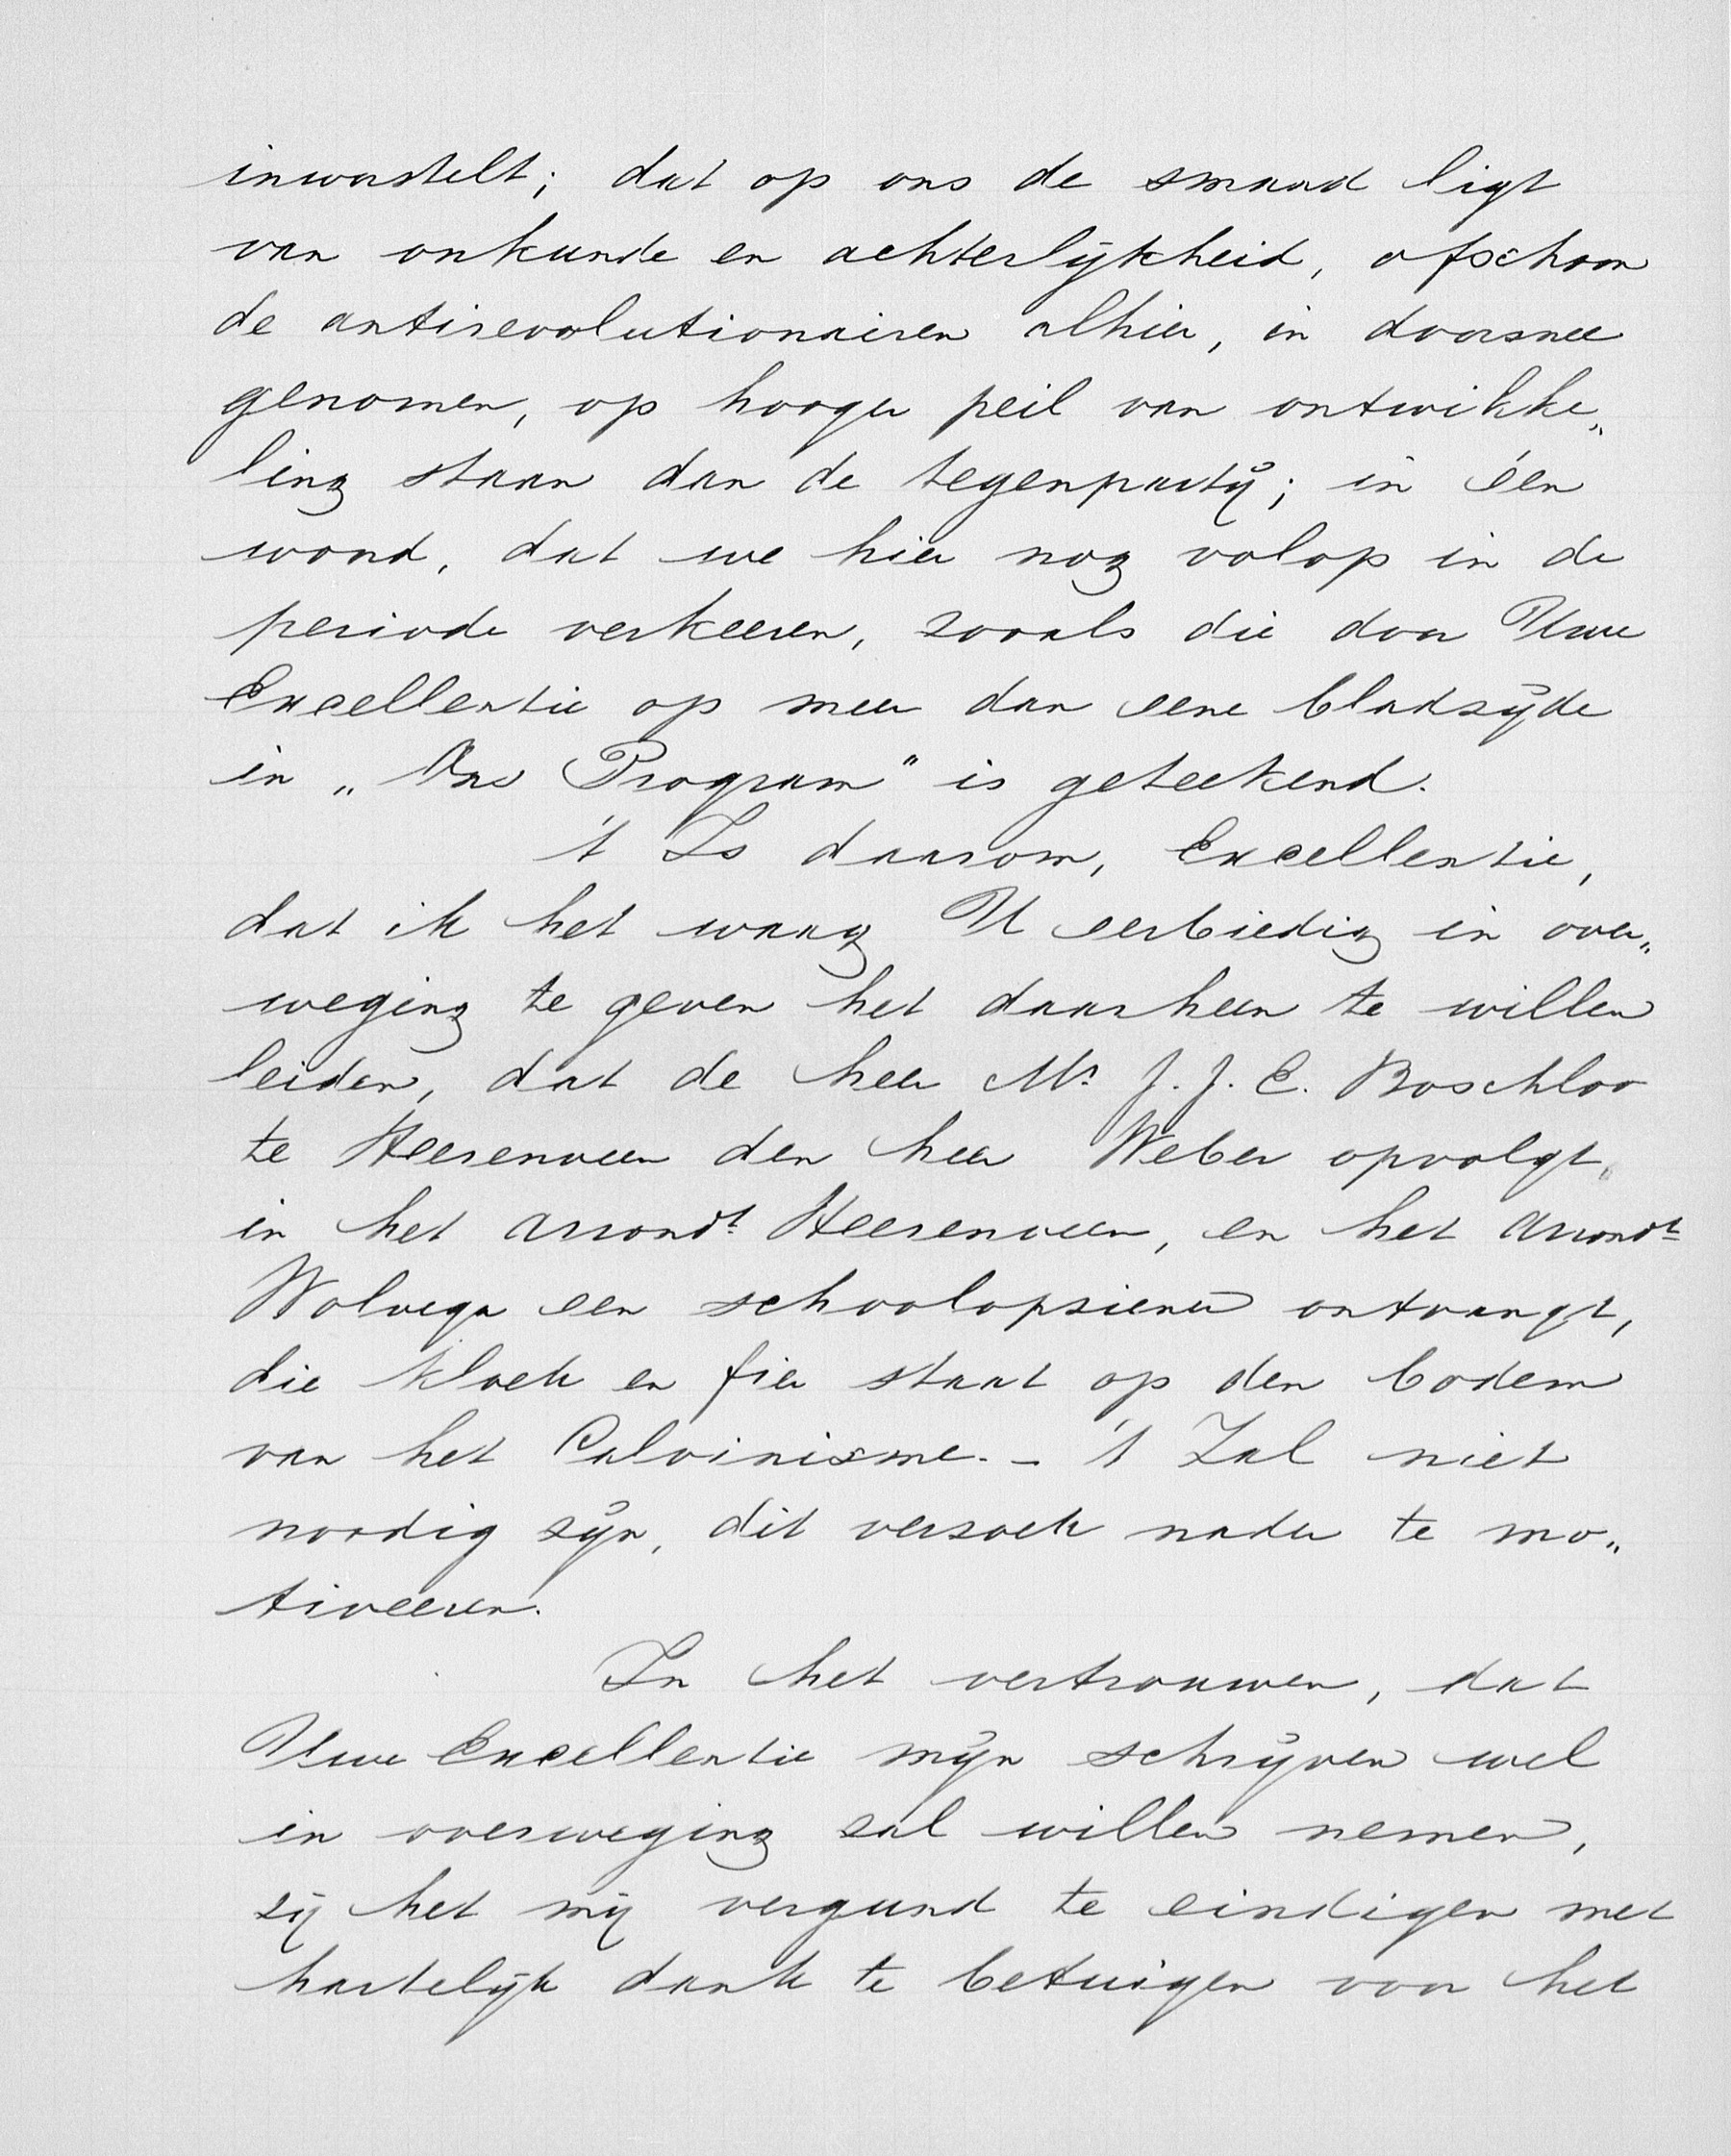 inworstelt; dat op ons de smaad ligt
van onkunde en achterlijkheid, ofschoon
de antirevolutionairen alhier, in doorsnee
genomen, op hooger peil van ontwikke„
ling staan dan de tegenpartij; in één
woord, dat we hier nog volop in de
periode verkeeren, zooals die door Uwe
Excellentie op meer dan eene bladzijde
in „Ons Program" is geteekend.
't Is daarom, Excellentie,
dat ik het waag U eerbiedig in over„
weging te geven het daarheen te willen
leiden, dat de heer Mr J. J. C. Boschloo
te Heerenveen den heer Weber opvolgt,
in het arrondt Heerenveen, en het arrondt
Wolvega een schoolopziener ontvangt,
die kloek en fier staat op den bodem
van het Calvinisme. - 't Zal niet
noodig zijn, dit verzoek nader te mo„
tiveeren.
In het vertrouwen, dat
Uwe Excellentie mijn schrijven wel
in overweging zal willen nemen,
zij het mij vergund te eindigen met
hartelijk dank te betuigen voor het